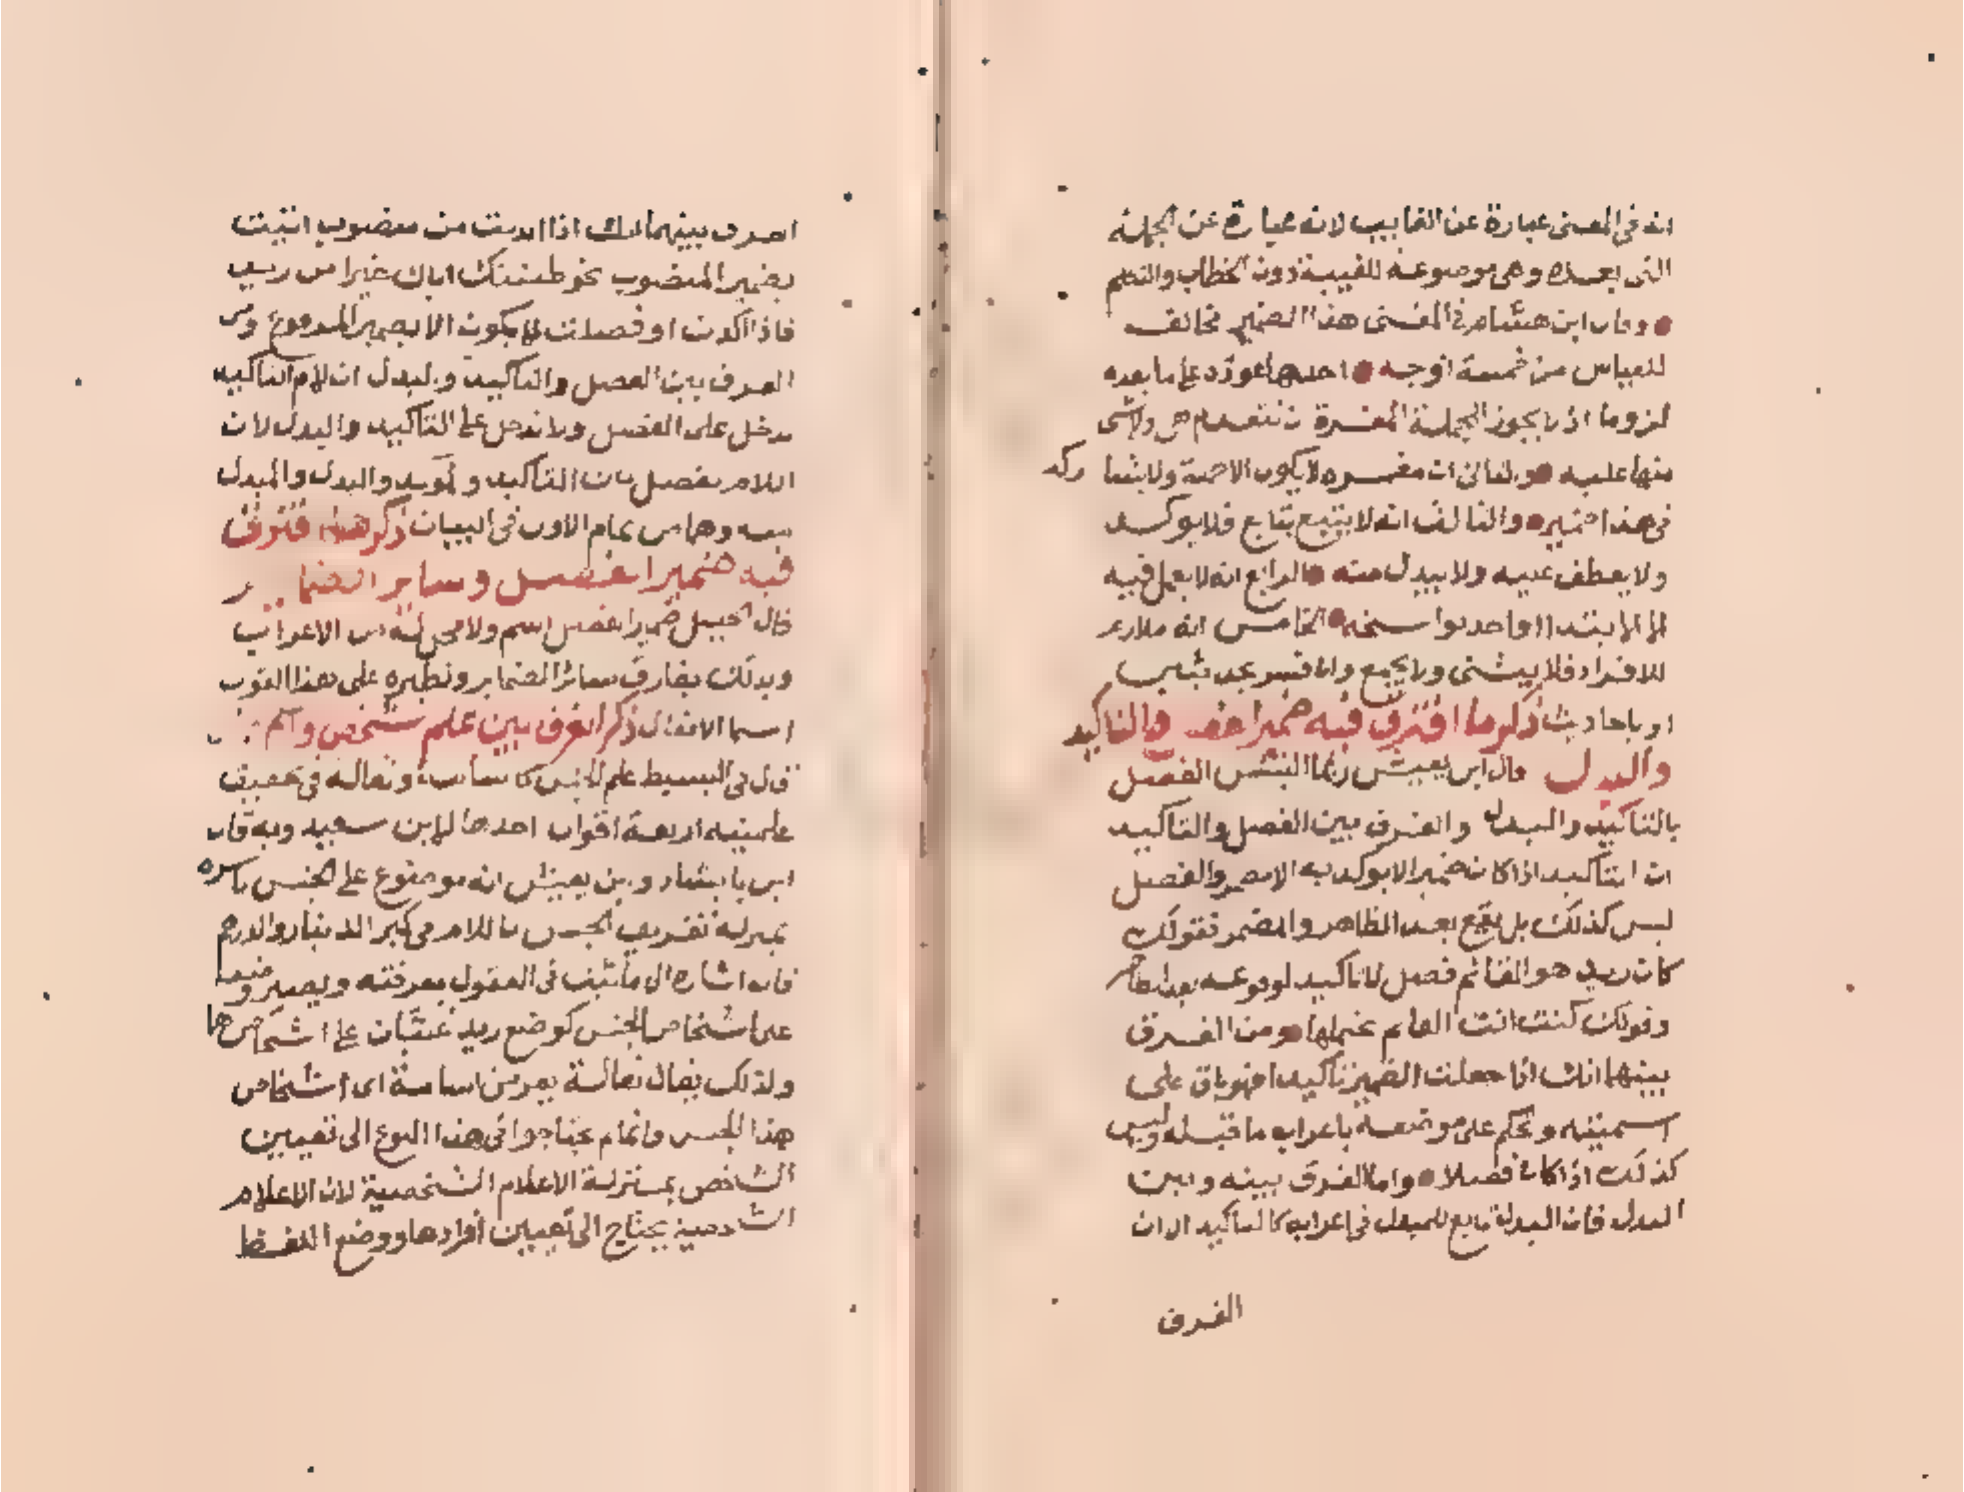 انه في المعنى عبارة عن الغايب لانه عبارة عن الجملة
التى بعده وهى موضوعة للغيبة دون الخطاب والتكلم
وقال ابن هشام فى المغنى هذا الضمير مخالف
للقياس من خمسة اوجه احدها عوده على ما بعده
لزوما اذ لا يجوز للجملة المفسرة ان تتقدم هى ولا شى
منها عليه والثانى ان مفسره لا يكون الا جملة ولا يشاركه
فى هذا ضمير والثالث انه لا يتبع بتابع فلا يوكد
ولا يعطف عليه ولا يبدل منه الرابع انه لا يعمل فيه
الا الابتدا او احد نواسخه الخامس انه ملازم
للافراد فلا يثنى ولا يجمع وان فسر بحديثين
او باحاديث ذكر ما افترق فيه ضمير الفصل والتاكيد
والبدل قال ابن يعيش ربما التبس الفصل
بالتاكيد والبدل والفرق بين الفصل والتاكيد
ان التاكيد اذا كان ضميرا لا يوكد به الا المضمر والفصل
ليس كذلك بل يقع بعد الظاهر والمضمر فقولك
كان زيد هو القائم فصل لا تاكيد لوقوعه بعد ظاهر
وقولك كنت انت القايم يحتملها ومن الفرق
بينهما انك اذا جعلت الضمير تاكيدا فهو باق على
اسميته ويحكم على موضعه باعراب ما قبله وليس
كذلك اذا كان فصلا واما الفرق بينه وبين
البدل فان البدل تابع للمبدل فى اعرابه كالتاكيد الا ان
الفرق
الفرق بينهما انك اذا ابدلت من منصوب اتيت
بضمير المنصوب نحو ظننتك اياك خيرا من زيد
فاذا اكدت او فصلت لا يكون الا بضمير المرفوع ومن
الفرق بين الفصل والتاكيد والبدل ان لام التاكيد
تدخل على الفصل ولا تدخل على التاكيد والبدل لان
اللام تفصل بين التاكيد والموكد والبدل والمبدل
منه وهما من تمام الاول فى البيان ذكر ما افترق
فيه ضمير الفصل وساير الضماير
قال الخليل ضمير الفصل اسم ولا محل له من الاعراب
وبذلك يفارق سائر الضماير ونظيره على هذا القول
اسما الافعال ذكر الفرق بين علم شخص و
قال فى البسيط علم الجنس كاسامة وثعالة فى تحقيق
علميته اربعة اقوال احدها لابى سعيد وبه قال
ابن بابشاذ وابن يعيش انه موضوع على الجنس باسره
بمنزلة تعريف الجنس باللام فى كثر الدينار والدرهم
فانه اشارة الى ما ثبت فى العقول معرفته ويصير وضعه
على اشخاص الجنس كوضع زيد علما على اشخاصها
ولذلك يقال ثعالة يفر من اسامة اى اشخاص
هذا الجنس وانما لم يحتاجوا فى هذا النوع الى تعيين
الشخص بمنزلة الاعلام الشخصية لان الاعلام
الشخصية يحتاج الى تعيين افرادها ووضع اللفظ